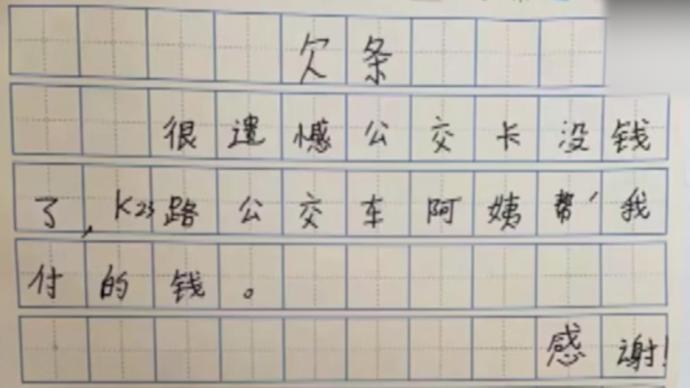 欠条
很遗憾公交卡没钱
了,K23路公交车阿姨帮我
付的钱。
感谢!